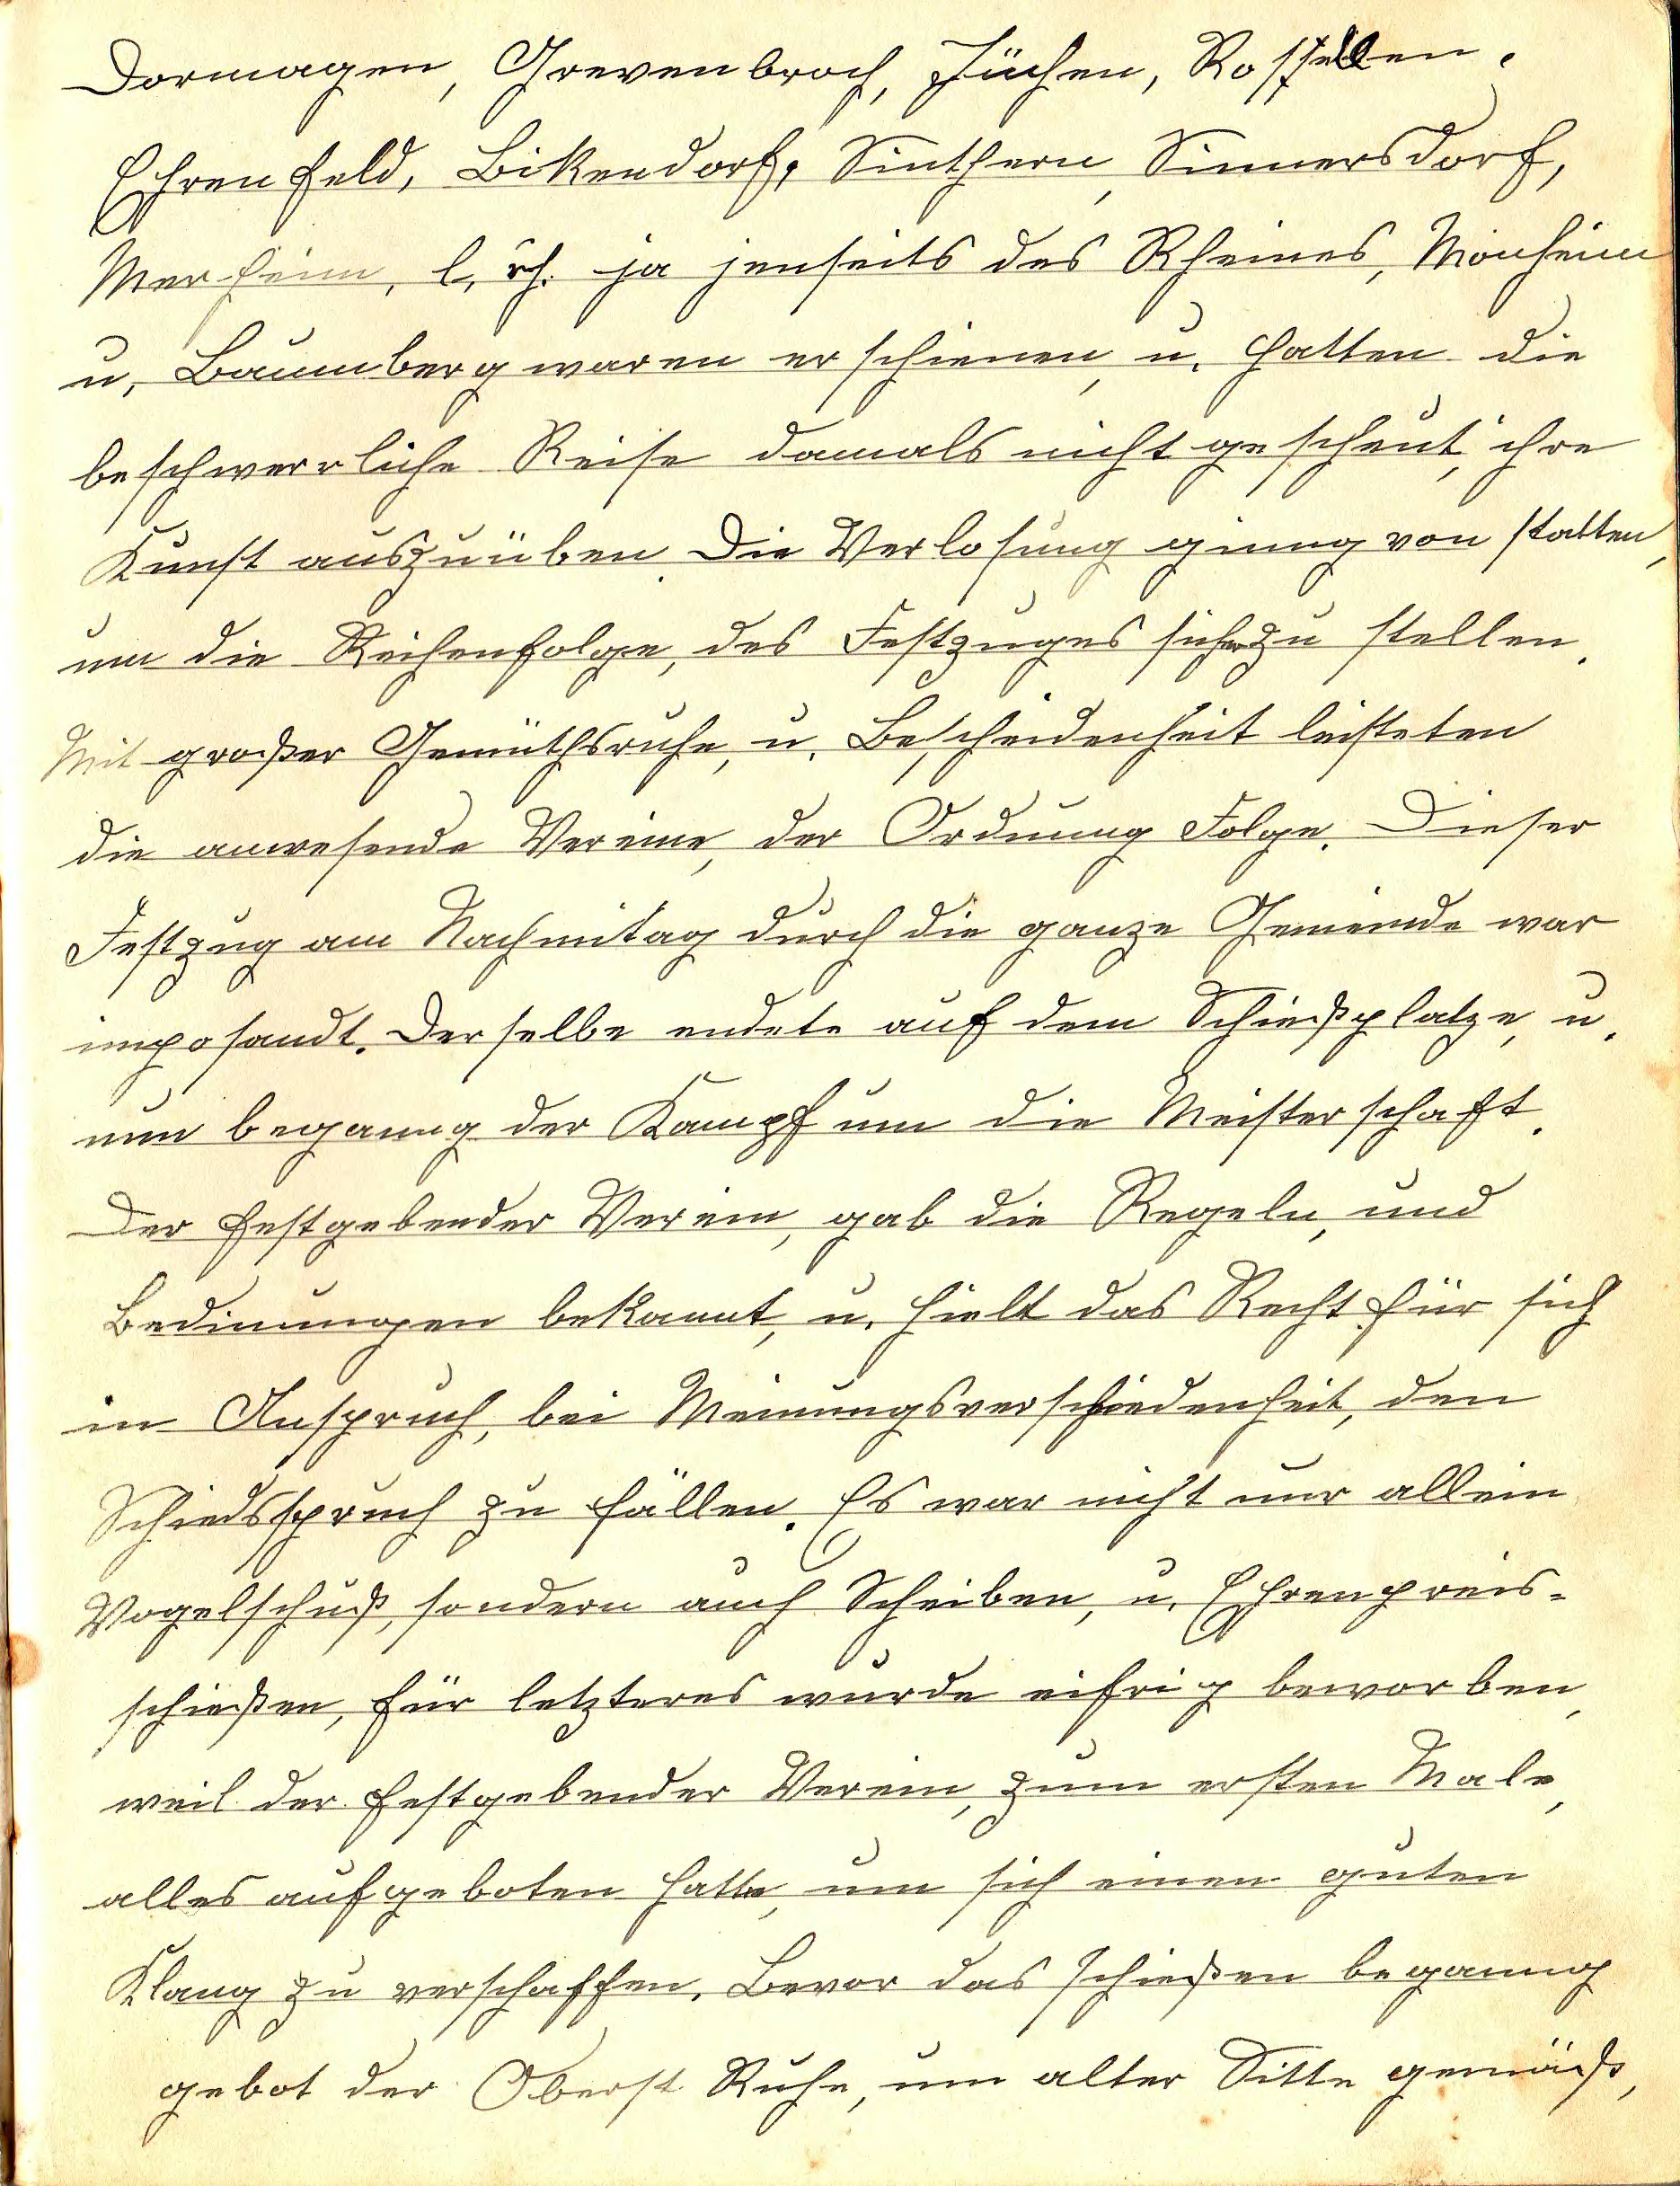 Dormagen, Grevenbroch, Jüchen, Rosellen.
Ehrenfeld, Bikendorf, Sinthern, Sinnersdorf,
Merheim, l. rh. ja jenseits des Rheines, Monheim
u. Baumberg waren erschienen, u. hatten die
beschwerrliche Reise damals nicht gescheut, ihre
Kunst auszuüben. Die Verlosung ginng von statten,
um die Reihenfolge, des Festzuges sicher zu stellen.
Mit großer Gemüthsruhe, u. Bescheidenheit leisteten
die anwesende Vereine, der Ordnung Folge. Dieser
Festzug am Nachmitag durch die ganze Gemeinde war
imposandt. Derselbe endete auf dem Schießplatze, u.
nun beganng der Kampf um die Meisterschaft.
Der festgebender Verein, gab die Regeln, und
Bedinungen bekannt, u. hielt das Recht für sich
in Anspruch, bei Meinungsverschiedenheit, den
Schiedsspruch zu fällen. Es war nicht nur allein
Vogelschuß, sondern auch Scheiben, u. Ehrenpreis-
schießen, für letzteres wurde eifrig beworben,
weil der festgebender Verein, zum ersten Male,
alles aufgeboten hatte, um sich einen guten
Klang zu verschaffen. Bevor das schießen beganng
gebot der Oberst Ruhe, um alter Sitte gemäß,